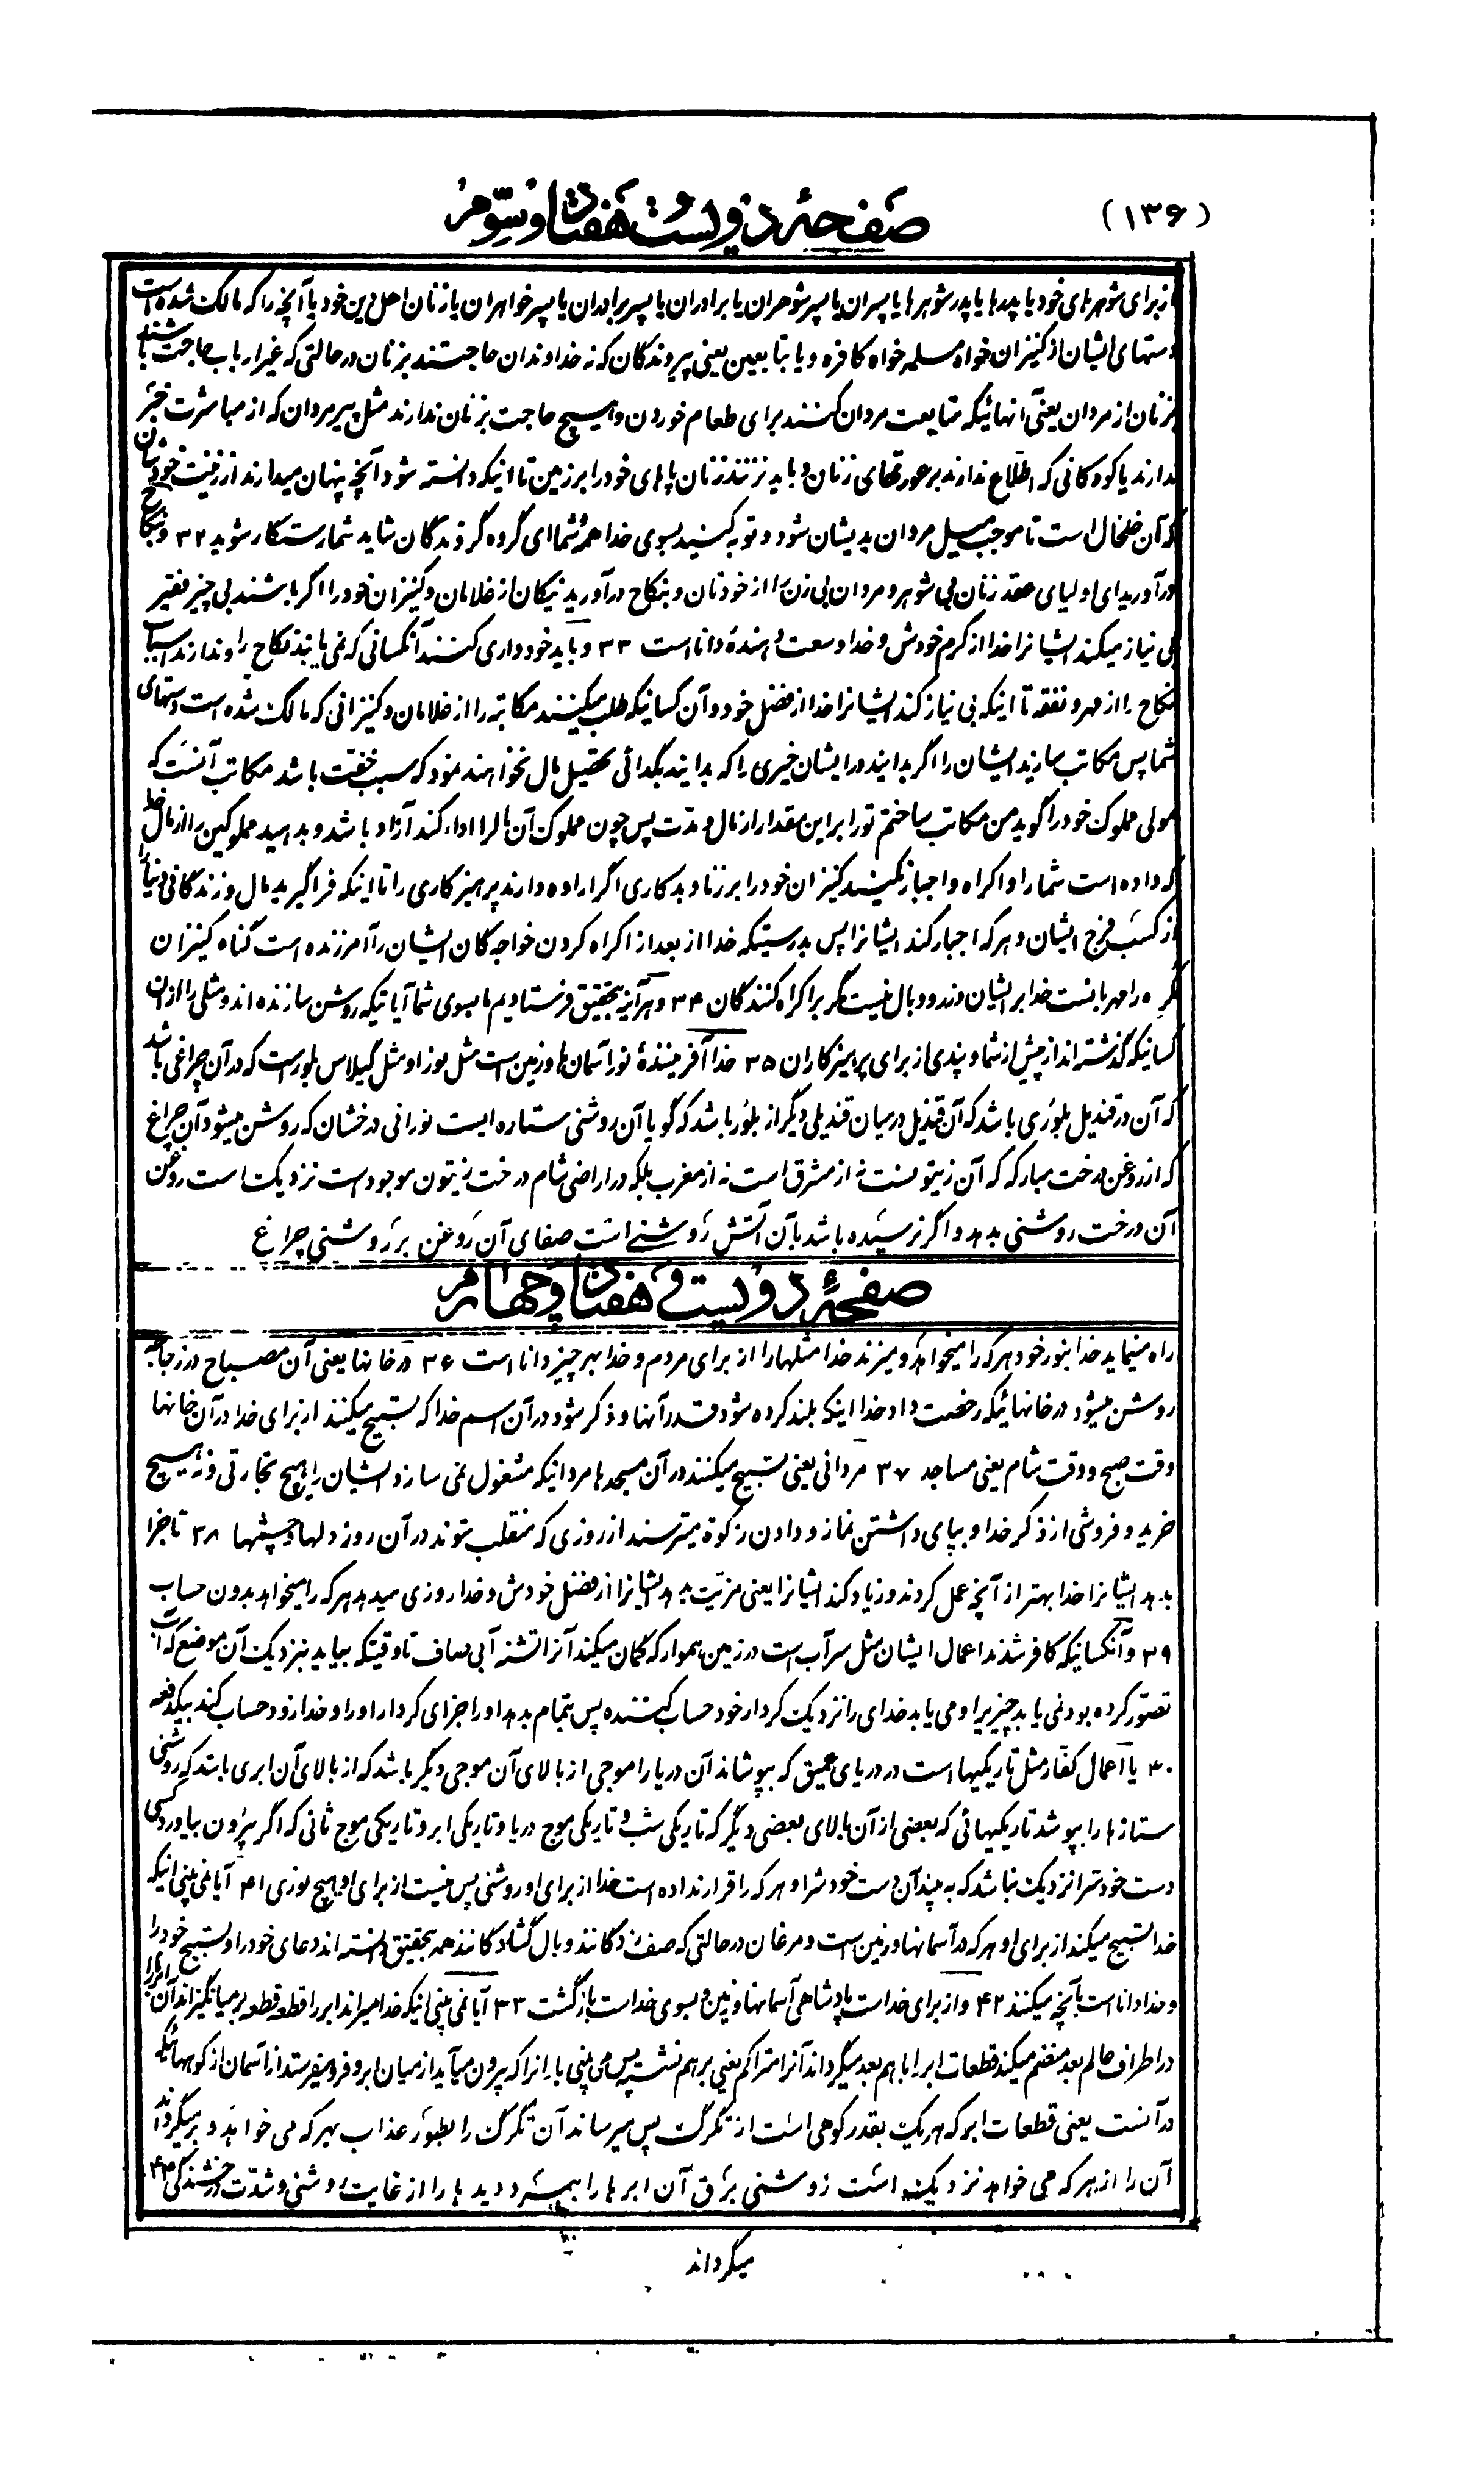 (۱۳۶)
صفحهٔ دویست و هفتاد و سوم
از برای شوهرهای خود یا پدرها یا پدر شوهرها یا پسران یا پسر شوهران یا برادران یا پسر برادران یا پسر خواهران یا زنان اهل دین خود یا آنچه را که مالک شده است
دستهای ایشان از کنیزان خواه مسلمه خواه کافره و یا بتابعین یعنی پیروندگان که نه خداوندان حاجتند بزنان در حالتی که غیر ارباب حاجت باشند
بزنان از مردان یعنی آنهائیکه متابعت مردان کنند برای طعام خوردن و هیچ حاجت بزنان ندارند مثل پیر مردان که از مباشرت خبر
ندارند یا کودکانی که اطلاع ندارند بر عورتهای زنان و باید نزنند زنان پاهای خود را بر زمین تا اینکه دانسته شود آنچه پنهان میدارند از زینت خودشان
که آن خلخال است تا موجب میل مردان بدیشان شود و توبه کنید بسوی خدا همهٔ شما ای گروه گروندگان شاید شما رستگار شوید ۳۲ و بنکاح
درآورید ای اولیای عقد زنان بی شوهر و مردان بی زن را از خودتان و بنکاح درآورید نیکان از غلامان و کنیزان خود را اگر باشند بی چیز فقیر
بی نیاز میکند ایشانرا خدا از کرم خودش و خدا وسعت دهندهٔ دانا است ۳۳ و باید خودداری کنند آنکسانی که نمی یابند نکاح را و ندارند اسباب
نکاح را از مهر و نفقه تا اینکه بی نیاز کند ایشانرا خدا از فضل خود و آن کسانیکه طلب میکنند مکاتبه را از غلامان و کنیزانی که مالک شده است دستهای
شما پس مکاتب سازید ایشان را اگر بدانید در ایشان خیری را که بدانید بگدائی تحصیل مال نخواهند نمود که سبب خفت باشد مکاتب آنست که
مولی مملوک خود را گوید من مکاتب ساختم تو را بر این مقدار از مال و مدت پس چون مملوک آن مال را ادا کند آزاد باشد و بدهید مملوکین را از مال خدا
که داده است شما را و اکراه و اجبار نکنید کنیزان خود را بر زنا و بدکاری اگر اراده دارند پرهیزکاری را تا اینکه فراگیرید مال و زندگانی دنیا را
از کسب فرج ایشان و هر که اجبار کند ایشانرا پس بدرستیکه خدا از بعد از اکراه کردن خواجه گان ایشان را آمرزنده است گناه کنیزان
مکره را مهربانست خدا بر ایشان وزر و وبال نیست مگر بر اکراه کنندگان ۳۴ و هرآینه بتحقیق فرستادیم ما بسوی شما آیاتیکه روشن سازنده اند و مثلی را از آن
کسانیکه گذشته اند از پیش از شما و پندی از برای پرهیزکاران ۳۵ خدا آفرینندهٔ نور آسمان ها و زمین است مثل نور او مثل گیلاس بلور است که در آن چراغی باشد
که آن در قندیل بلوری باشد که آن قندیل در میان قندیلی دیگر از بلور باشد که گویا آن روشنی ستاره ایست نورانی درخشان که روشن میشود آن چراغ
که از روغن درخت مبارکه که آن زیتونست نه از مشرق است نه از مغرب بلکه در اراضی شام درخت زیتون موجود است نزدیک است روغن
آن درخت روشنی بدهد و اگر نرسیده باشد بآن آتش روشنی است صفای آن روغن بر روشنی چراغ
صفحهٔ دویست و هفتاد و چهارم
راه مینماید خدا بنور خود هر که را میخواهد و میزند خدا مثلها را از برای مردم و خدا بهر چیز دانا است ۳۶ در خانها یعنی آن مصباح در زجاجه
روشن میشود در خانهائیکه رخصت داد خدا اینکه بلند کرده شود قدر آنها و ذکر شود در آن اسم خدا که تسبیح میکنند از برای خدا در آن خانها
وقت صبح و وقت شام یعنی مساجد ۳۷ مردانی یعنی تسبیح میکنند در آن مسجدها مردانیکه مشغول نمی سازد ایشان را هیچ تجارتی و نه هیچ
خرید و فروشی از ذکر خدا و بپای داشتن نماز و دادن زکوة میترسند از روزی که منقلب شوند در آن روز دلها و چشمها ۳۸ تا جزا
بدهد ایشانرا خدا بهتر از آنچه عمل کردند و زیاد کند ایشانرا یعنی مزیت بدهد ایشانرا از فضل خودش و خدا روزی میدهد هر که را میخواهد بدون حساب
۳۹ و آنکسانیکه کافر شدند اعمال ایشان مثل سرآب است در زمین هموار که گمان میکند آنرا تشنه آبی صاف تا وقتیکه بیاید بنزدیک آن موضع که آب
تصور کرده بود نمی یابد چیزیرا و می یابد خدای را نزدیک کردار خود حساب کننده پس بتمام بدهد او را جزای کردار او را و خدا زود حساب کند بیکدفعه
۴۰ یا اعمال کفار مثل تاریکیها است در دریای عمیق که بپوشاند آن دریا را موجی از بالای آن موجی دیگر باشد که از بالای آن ابری باشد که روشنی
ستاره ها را بپوشد تاریکیهائی که بعضی از آن بالای بعضی دیگر که تاریکی شب و تاریکی موج دریا و تاریکی ابر و تاریکی موج ثانی که اگر بیرون بیاورد کسی
دست خود را نزدیک نباشد که به بیند آن دست خود را و هر که را قرار نداده است خدا از برای او روشنی پس نیست از برای او هیچ نوری ۴۱ آیا نمی بینی اینکه
خدا تسبیح میکند از برای او هر که در آسمانها و زمین است و مرغان در حالتی که صف زدگانند و بال گشادگانند همه بتحقیق دانسته اند دعای خود را و تسبیح خود را
و خدا دانا است بآنچه میکنند ۴۲ و از برای خداست پادشاهی آسمانها و زمین و بسوی خداست بازگشت ۴۳ آیا نمی بینی اینکه خدا میراند ابر را قطعه قطعه بر میانگیزاند آن ابرها را
در اطراف عالم بعد منضم میکند قطعات ابر را با هم بعد میگرداند آنرا متراکم یعنی بر هم نشسته پس می بینی باران را که بیرون میآید از میان ابر و فرو میفرستد از آسمان از کوههائیکه
در آنست یعنی قطعات ابر که هر یک بقدر کوهی است از تگرگ پس میرساند آن تگرگ را بطور عذاب بهر که می خواهد و بر میگرداند
آن را از هر که می خواهد نزدیک است روشنی برق آن ابرها را ببرد دیدها را از غایت روشنی و شدت درخشندگی ۴۴
میگرداند